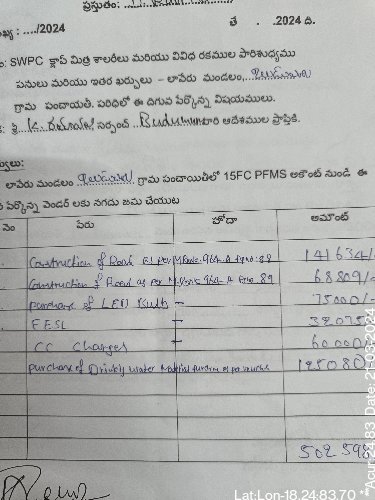 ప్రస్తుతం:
ఖ్య : ..../2024 తే . .2024 ది.
ం: SWPC క్లాప్ మిత్ర శాలరీలు మరియు వివిధ రకముల పారిశుధ్యము
పనులు మరియు ఇతర ఖర్చులు – లావేరు మండలం,
గ్రామ పంచాయతీ. పరిధిలో ఈ దిగువ పేర్కొన్న విషయములు.
శ్రీ సర్పంచ్ వారి ఆదేశముల ప్రాప్తికి.
లావేరు మండలం గ్రామ పంచాయితీలో 15FC PFMS అకౌంట్ నుండి ఈ
పేర్కొన్న వెండర్ లకు నగదు జమ చేయుట
పేరు హోదా అమౌంట్
Construction of Road as per M.Book-964 A Pgno:88 141634/-
Construction of Road as per M.Book 964-A Pno. 89 68809/-
purchase of LED Bulbs – 75000/-
EESL –
CC Charges – 60000/-
purchase of Drinking water Material as per vouchers 125080
502598
Lat:Lon-18.24-83.70
Acur:24.83 Date:21-03-2024